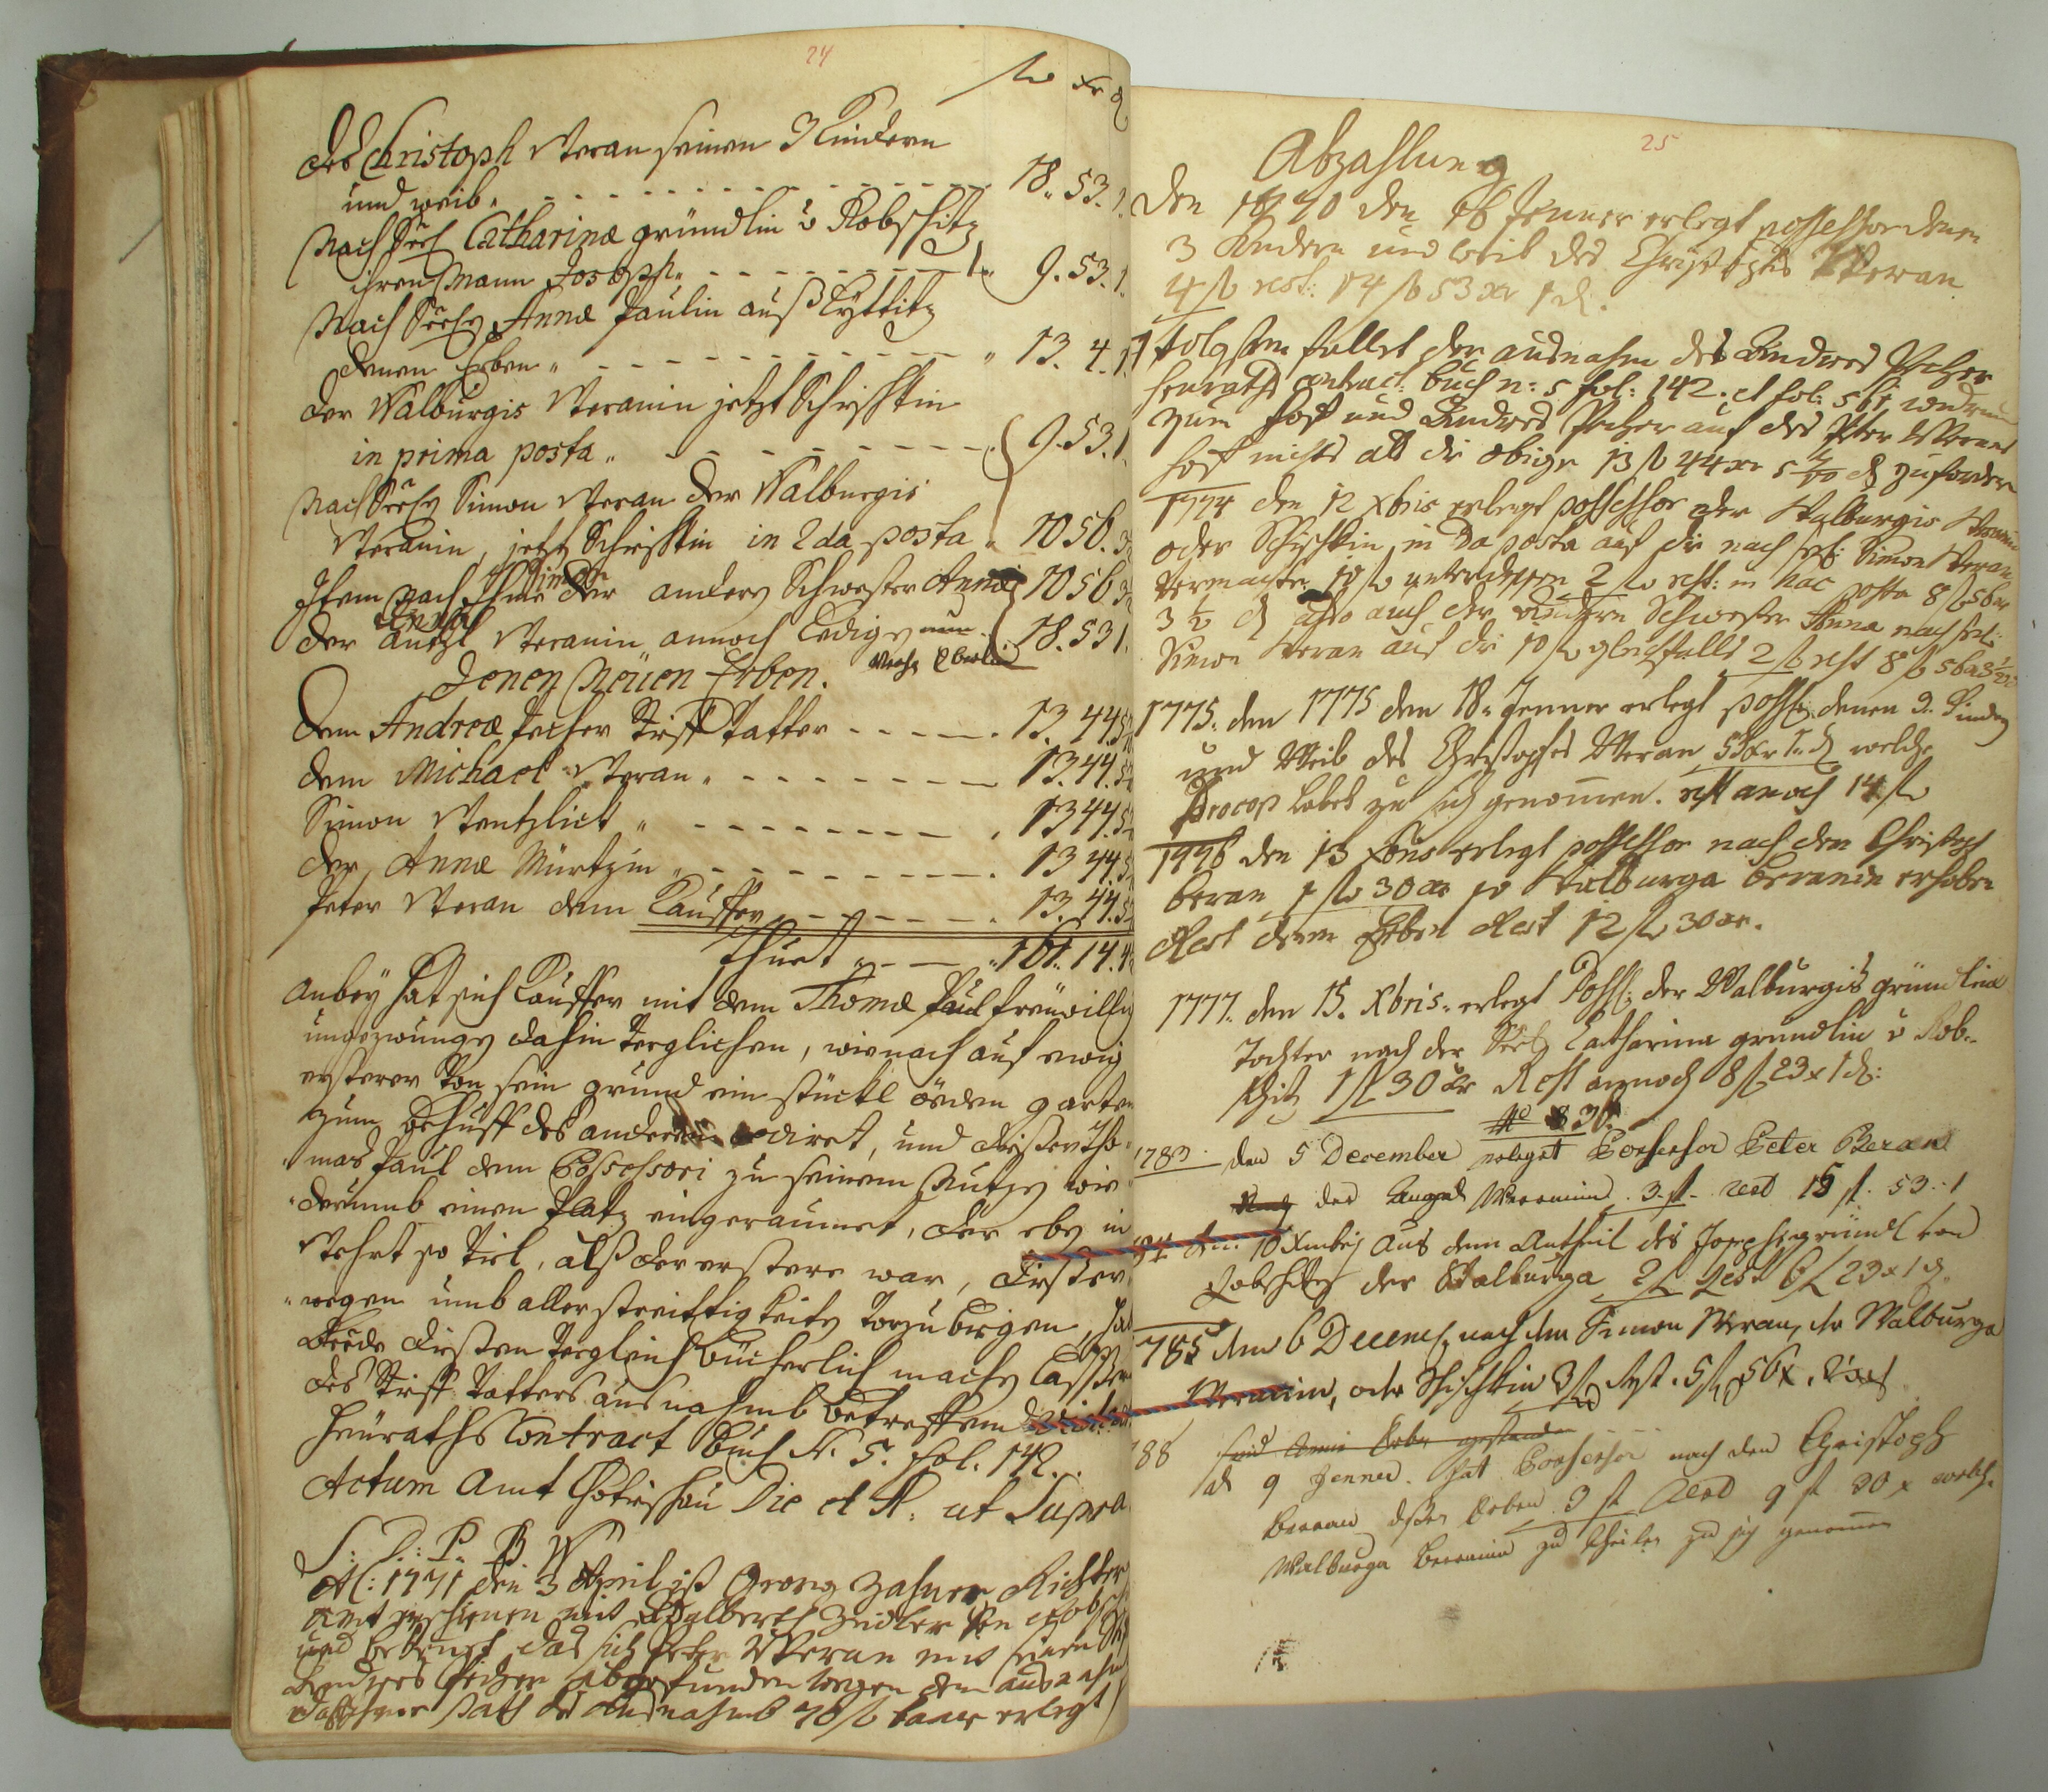 24
fl xr d
des Christoph Weran seinen 3 Kindern
und weib. 18. 53. 1.
Nach Seel. Catharinæ gründlin v Kobschitz
ihren Mann Joseph. 9. 53. 1.
Nach Seel. Annæ Paulin auß Tyttitz
denen Erben 13. 4. 1
der Walburgis Weranin jetzt Schischkin
in prima posta 9. 53. 1.
Nach Seel. Simon Weran der Walburgis
Weranin, jetzt Schischkin in 2da posta 10 56. 3
Item Nach Ihme Simon der andern Schwester Annæ 10 56 3
der Weranin annoch Ledigen 18. 53 1.
Denen Neüen Erben.
Dem Andreæ Pecher Stieff Vatter 13. 44. 5
dem Michael Weran 13. 44. 5
Simon Wentzlick 13 44. 5
der Annæ Mürtzin 13 44 5
Peter Weran dem Kauffer 13. 44. 5
thuet 161. 14. 4
Anbey hat sich Kauffer mit dem Thomæ Paul freüwillig
ungezwungen dahin verglichen, wie nach auf ewig
ersterer von sein grund ein stückl öeden garten
zum behuff des anderen cediret, und dieser Tho-
mas Paul dem Possessori zu seinem Nutzen wie-
derumb einen Platz eingeraumet, der eben in
Wehrt so viel, alß der erstere war, dießer-
wegen umb aller streittigkeiten vorzubiegen, hab
beede dießen Vergleich bücherlich machen laßßen
des Stieff Vatters ausnahmb betreffend
Heüraths Contract Buch N. 5. fol. 142.
Actum Amt Chotieschau Die et A. ut Supra
S. T. P. B. W
A: 1771 den 3 April ist Georg Zahner Richter
amt erschienen mit Adalberth Zeidler von Kobsch
und bekennet, das sich Peter Weran mit seinen
Andreas Pecher abgefunden wegen den ausnahm
das ihme statt des ausnahmb 70 fl baar erlegt
25
Abzahlung
Den 1770 den 16 Jenner erlegt possessor denen
3 Kindern und weib des Christophs Weran
4 fl rest: 14 fl 53 xr 1 d.
Folgsam fallet der ausnahm des Andres Pecher
heuraths contract: buch n: 5 fol: 142. et fol: 561 widrum
zum Hoff und Andres Pecher auf des Peter Werans
Hoff nichts als die obige 13 fl 44 xr 5 d zufordern
1774 den 12 Xbris erlegt possessor der Walburgis Weranin
oder Schischkin in 2da posta auf die nach sel: Simon Weran
vermachte 10 fl 2 fl rest: in hac posta 8 fl 56 xr
3 ½ d also auch der andern Schwester Anna nach sel:
Simon Weran auf die 10 fl gleichfalls 2 fl rest 8 fl 56 xr 3 ½
1775. den 1775 den 18. Jenner erlegt poss: denen 3. Kindern
und Weib des Christophs Weran 53 xr 1 d welche
Procop Lobek zu sich genommen. rest annoch 14 fl
1776 den 13 Xbris erlegt possessor nach den Christoph
beran 1 fl 30 xr so Walburga beranin erhoben
Rest denen Erben Rest 12 fl 30 xr.
1777. den 15. Xbris. erlegt Poss: der Walburgis gründlin
Tochter nach der Seel Catharina grundlin v Kob-
schitz 1 fl 30 xr Rest annoch 8 fl 23 x 1 d:
1783. den 5 December erleget Possessor Peter Beran
der Weranin 3 fl rest 15 fl. 53. 1
84 den 10 Xmbris aus dem Antheil des Josephs gründl von
Kobschitz der Walburga 2 fl Rest 6 fl 23 x 1 d.
785 den 6 Decemb. nach dem Simon Weran, der Walburga
Weranin, oder Schischkin 3 fl Rest. 5 fl 56 x.
788
d 9 Jenner. hat Possessor nach den Christoph
Beran dessen Erben 3 fl Rest 9 fl 30 x welche
Walburga Beranin zu theilen zu sich genommen